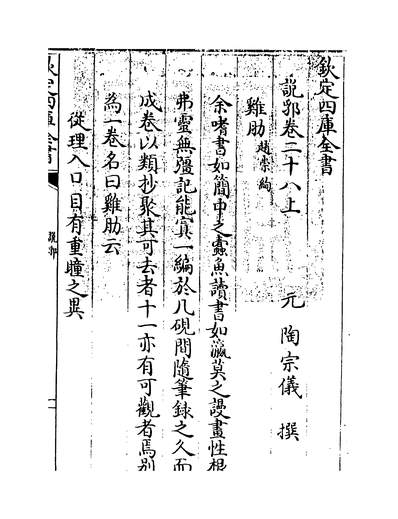 欽定四庫全書
說郛卷二十八上
元 陶宗儀 撰
雞肋 趙崇絢
余嗜書如簡中之蠧魚讀書如瀛莫之謾畫性根
弗靈無彊記能寘一編於几硯間隨筆録之久而
成卷以類抄聚其可去者十一亦有可觀者焉别
為一卷名曰雞肋云
從理入口目有重瞳之異
欽定四庫全書
說郛